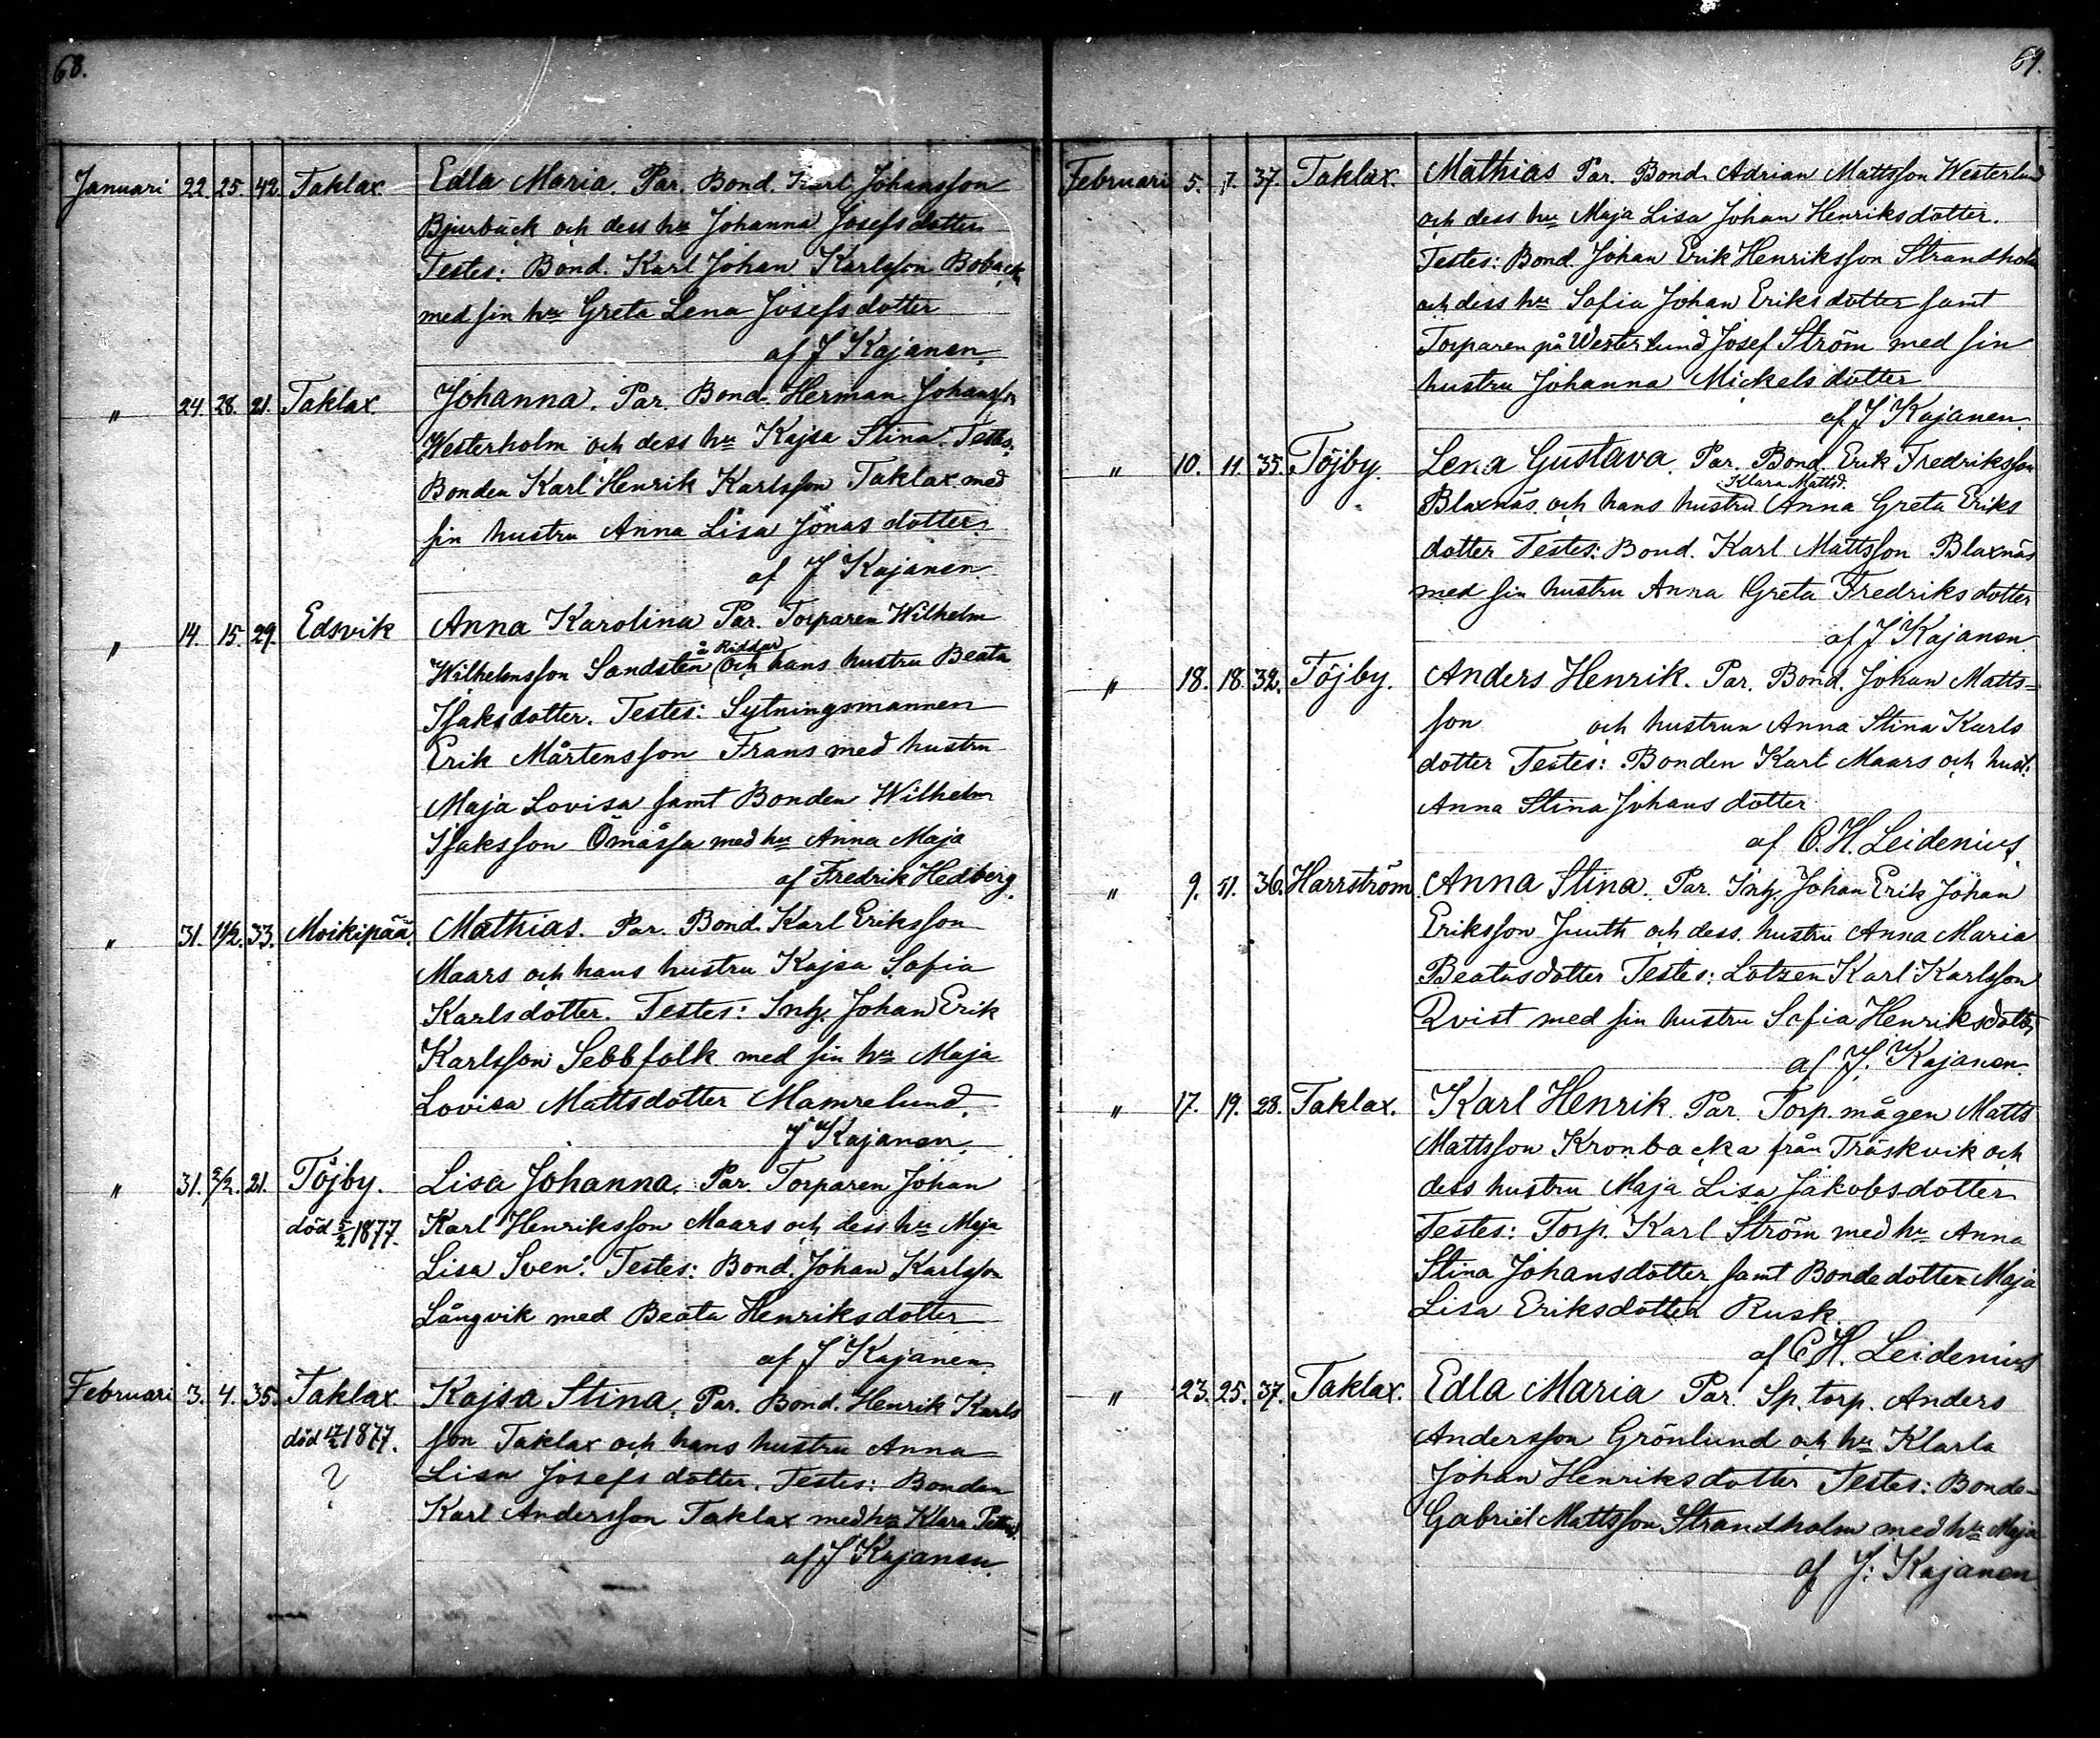 68.
Januari 22. 25. 42. Taklax Edla Maria. Par. Bond. Karl Johansson
Bjurbäck och dess hu Johanna Josefsdotter
Testes: Bond. Karl Johan Karlsson Boback
med sin hu Greta Lena Josefsdotter
af J Kajanen
" 24. 28. 21. Taklax Johanna. Par. Bond. Herman Johansson
Westerholm och dess hu Kajsa Stina. Testes:
Bonden Karl Henrik Karlsson Taklax med
sin hustru Anna Lisa Jonasdotter.
af J Kajanen
" 14. 15. 29. Edsvik Anna Karolina Par. Torparen Wilhelm
å Riddar
Wilhelmsson Sandsten och hans hustru Beata
Isaksdotter. Testes: Sytningsmannen
Erik Mårtensson Frans med hustru
Maja Lovisa samt Bonden Wilhelm
Isaksson Ömossa med hu Anna Maja
af Fredrik Hedberg.
" 31. 11/2. 33. Moikipää. Mathias. Par. Bond. Karl Eriksson
Maars och hans hustru Kajsa Sofia
Karlsdotter. Testes: Inh. Johan Erik
Karlsson Sebbfolk med sin hu Maja
Lovisa Mattsdotter Mamrelund.
J Kajanen
" 31. 21. Töjby. Lisa Johanna. Par. Torparen Johan
död 5/2 1877. Karl Henriksson Maars och dess hu Maja
Lisa Sven: Testes: Bond. Johan Karlsson
Långvik med Beata Henriksdotter
af J Kajanen
Februari 3. 4. 35. Taklax. Kajsa Stina, Par. Bond. Henrik Karls
död 1877. son Taklax och hans hustru Anna
? Lisa Josefsdotter. Testes: Bonden
Karl Andersson Taklax med hu Klara
af J Kajanen
69.
Februari 5. 7. 37. Taklax. Mathias Par. Bond. Adrian Mattsson Westerlund
och dess hu Maja Lisa Johan Henriksdotter.
Testes: Bond. Johan Erik Henriksson Strandholm
och dess hu Sofia Johan Eriksdotter samt
Torparen på Westerlund Josef Ström med sin
hustru Johanna Mickelsdotter
af J Kajanen.
" 10. 11. 35. Töjby. Lena Gustava. Par. Bond. Erik Fredriksson
Klara Mattsd.
Blaxnäs och hans hustru (Anna Greta Eriks
dotter Testes: Bond. Karl Mattsson Blaxnäs
med sin hustru Anna Greta Fredriksdotter
af J Kajanen
" 18. 18. 32. Töjby. Anders Henrik. Par. Bond. Johan Matts=
son och hustrun Anna Stina Karls
dotter Testes: Bonden Karl Maars och hust:
Anna Stina Johansdotter
af C. H. Leidenius
" 9. 11. 36. Harrström Anna Stina. Par. Inh. Johan Erik Johan
Eriksson Juuth och dess hustru Anna Maria
Beatasdotter Testes: Lotzen Karl Karlsson
Qvist med sin hustru Sofia Henriksdotter
af J. Kajanen.
" 17. 19. 28. Taklax. Karl Henrik. Par. Torp. mågen Matts
Mattsson Kronbacka från Träskvik och
dess hustru Maja Lisa Jakobsdotter
Testes: Torp. Karl Ström med hu Anna
Stina Johansdotter samt Bondedotter Maja
Lisa Eriksdotter Rusk.
af C. H. Leidenius
" 23. 25. 37. Taklax. Edla Maria Par. Sp. torp. Anders
Andersson Grönlund och hu Klarla
Johan Henriksdotter Testes: Bonden
Gabriel Mattsson Strandholm med hu Maja
af J: Kajanen